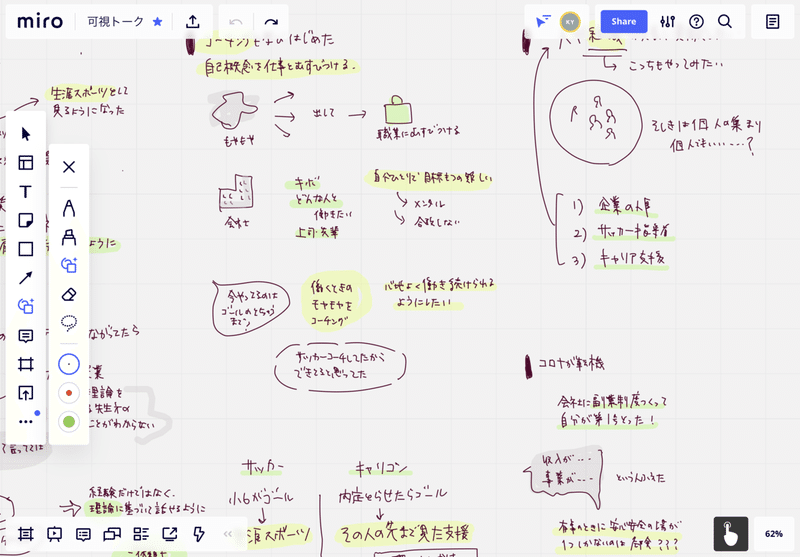 miro 可視トーク
Share
KY
自己概念を仕事とむすびつける.
生涯スポーツとして
見るようになった
もやもや
出して
職業にむすびつける
こっちもやってみたい
そしきは個人の集まり
個人でもいい……?
自分ひとりで目標もつの難しい
メンタル
会社
キボ
どんな人と
働きたい
上司・先輩
1) 企業の人事
2) サッカー指導者
3) キャリア支援
今やってるのは
ゴールのとちゅう
働くときの
モヤモヤを
コーチング
心地よく働き続けられる
ようにしたい
サッカーコーチしてたから
できてると思ってた
コロナが転機
会社に副業制度つくって
自分が第1号とった!
収入が…
事業が…
というふえた
理論を
ことがわからない
経験だけではなく、
理論に基づいて話せるように
サッカー
キャリコン
小6がゴール
内定とらせたらゴール
涯スポーツ
その人の先まで見た支援
有事のときに安心安全の場が
1つしかないのは
62%